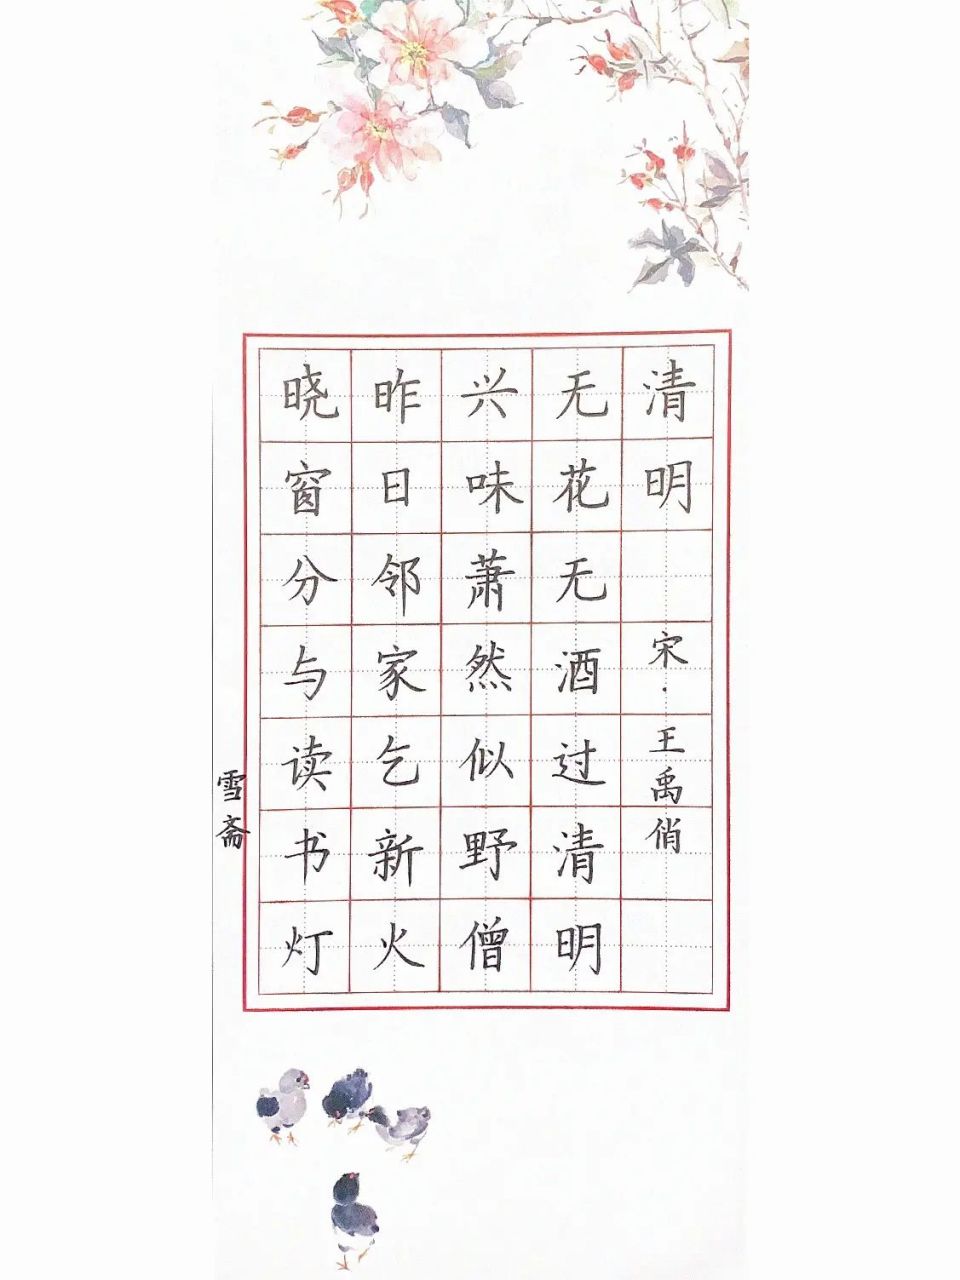 清明 宋·王禹俏
无花无酒过清明
兴味萧然似野僧
昨日邻家乞新火
晓窗分与读书灯
雪斋